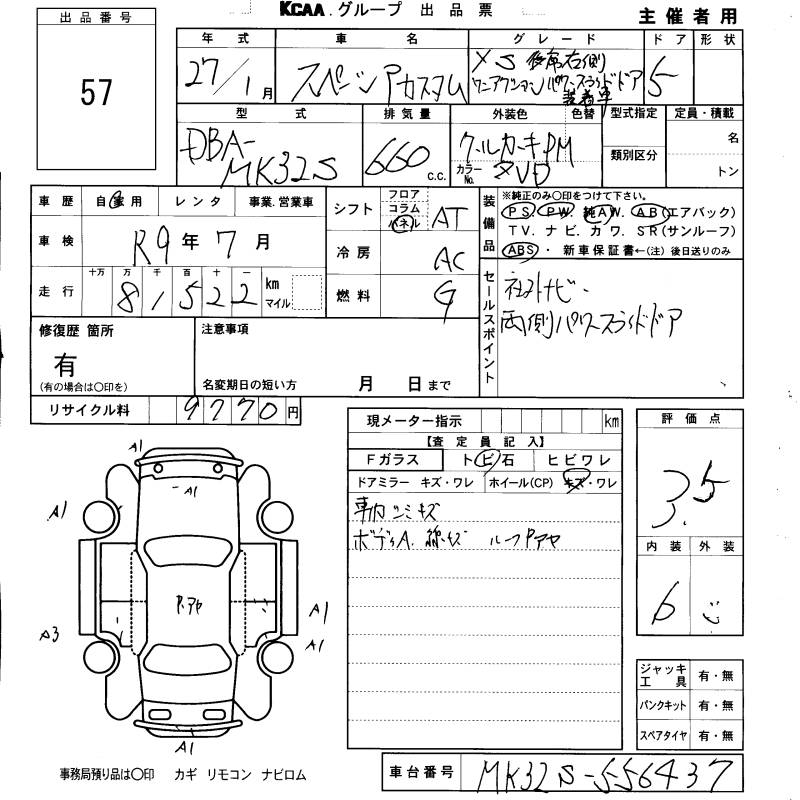 KCAA.グループ 出品票
主催者用
出品番号
57
年式 車名 グレード ドア 形状
27/1月 スペーシアカスタム XS 後席右側 5
ワンアクションパワースライドドア
装着車
型式 排気量 外装色 色替 型式指定 定員・積載
DBA-
MK32S
660 c.c.
クールカーキPM
カラーNo. ZVD
類別区分
名
トン
車歴 自家用 レンタ 事業.営業車
車検 R9年7月
走行 十万 万 千 百 十 一
81522 km マイル
シフト フロア コラム パネル AT
冷房 AC
燃料 G
装備品
※純正のみ〇印をつけて下さい。
PS. PW. 純AW. AB(エアバック)
TV. ナビ. カワ. SR(サンルーフ)
ABS・ 新車保証書←(注) 後日送りのみ
セールスポイント
社外ナビ
両側パワースライドドア
修復歴 箇所
有
(有の場合は〇印を)
注意事項
名変期日の短い方 月 日まで
リサイクル料 9770円
現メーター指示 km
【査定員記入】
Fガラス トビ石 ヒビワレ
ドアミラー キズ・ワレ ホイール(CP) キズ・ワレ
車内シミキズ
ボディA. 線キズ ルーフPアヤ
評価点
3.5
内装 外装
6
A1
A1
A1
P.アヤ
A1
A3
A1
A1
ジャッキ工具 有・無
パンクキット 有・無
スペアタイヤ 有・無
事務局預り品は〇印 カギ リモコン ナビロム
車台番号 MK32S-556437